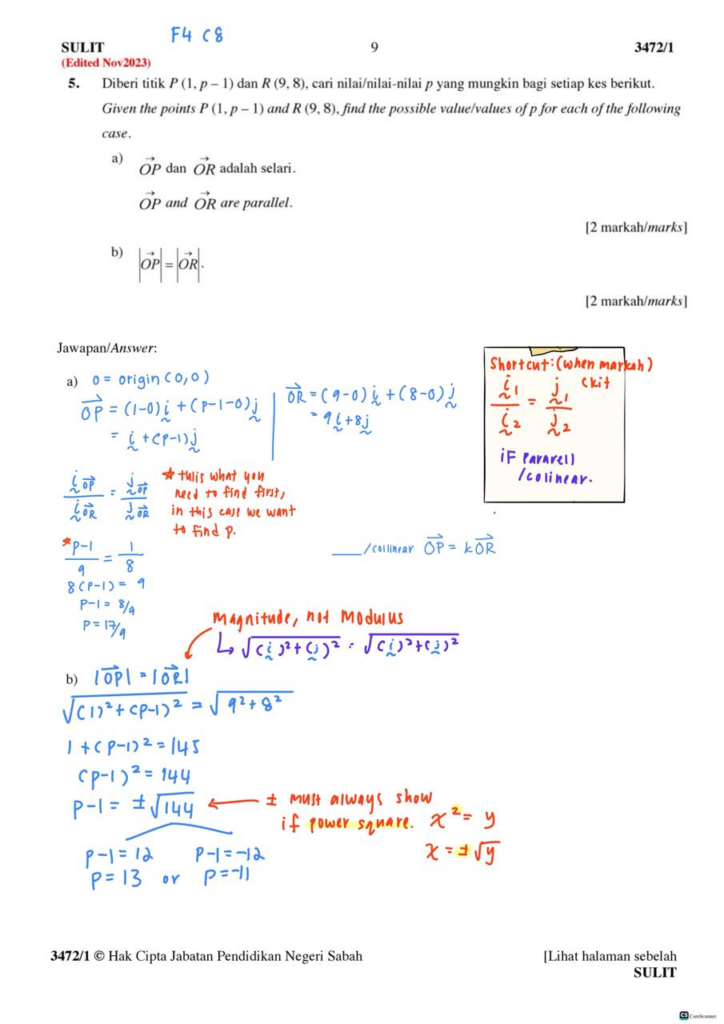 F4 C8
SULIT 9 3472/1
(Edited Nov2023)
5. Diberi titik P (1, p – 1) dan R (9, 8), cari nilai/nilai-nilai p yang mungkin bagi setiap kes berikut.
Given the points P (1, p – 1) and R (9, 8), find the possible value/values of p for each of the following
case.
a) →OP dan →OR adalah selari.
→OP and →OR are parallel.
[2 markah/marks]
b) |→OP| = |→OR|.
[2 markah/marks]
Jawapan/Answer:
a) O = origin (0,0)
→OP = (1-0)i + (P-1-0)j
= i + (P-1)j
→OR = (9-0)i + (8-0)j
= 9i + 8j
Shortcut: (when markah)
ckit
i1/i2 = j1/j2
if pararell
/colinear.
iOP/iOR = jOP/jOR
* tulis what you
need to find first,
in this case we want
to find p.
*P-1/9 = 1/8
8(P-1) = 9
P-1 = 8/9
P = 17/9
/collinear →OP = k→OR
magnitude, not modulus
↳ √(i)²+(j)² = √(i)²+(j)²
b) |→OP| = |→OR|
√(1)²+(P-1)² = √9²+8²
1+(P-1)² = 145
(P-1)² = 144
P-1 = ±√144
± must always show
if power square.
x² = y
x = ±√y
P-1 = 12 P-1 = -12
P = 13 or P = -11
3472/1 © Hak Cipta Jabatan Pendidikan Negeri Sabah [Lihat halaman sebelah
SULIT
CS CamScanner